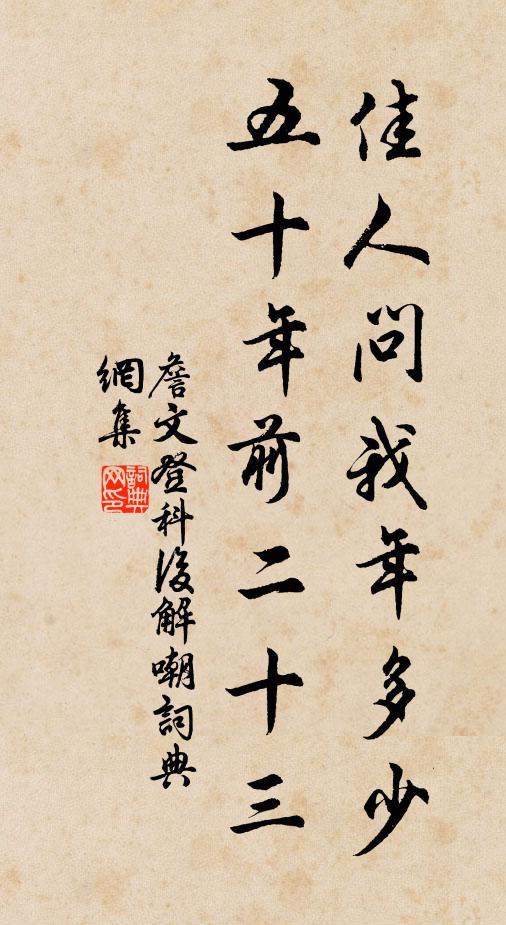 佳人問我年多少
五十年前二十三
詹文登科後解嘲詞典
網集
詞典
网印